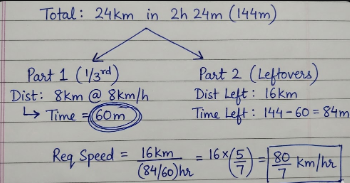 Total: 24km in 2h 24m (144m)
Part 1 (1/3rd)
Dist: 8km @ 8km/h
↳ Time = 60m
Part 2 (Leftovers)
Dist Left: 16km
Time Left: 144-60 = 84m
Req Speed = 16km/(84/60)hr = 16×(5/7) = 80/7 km/hr